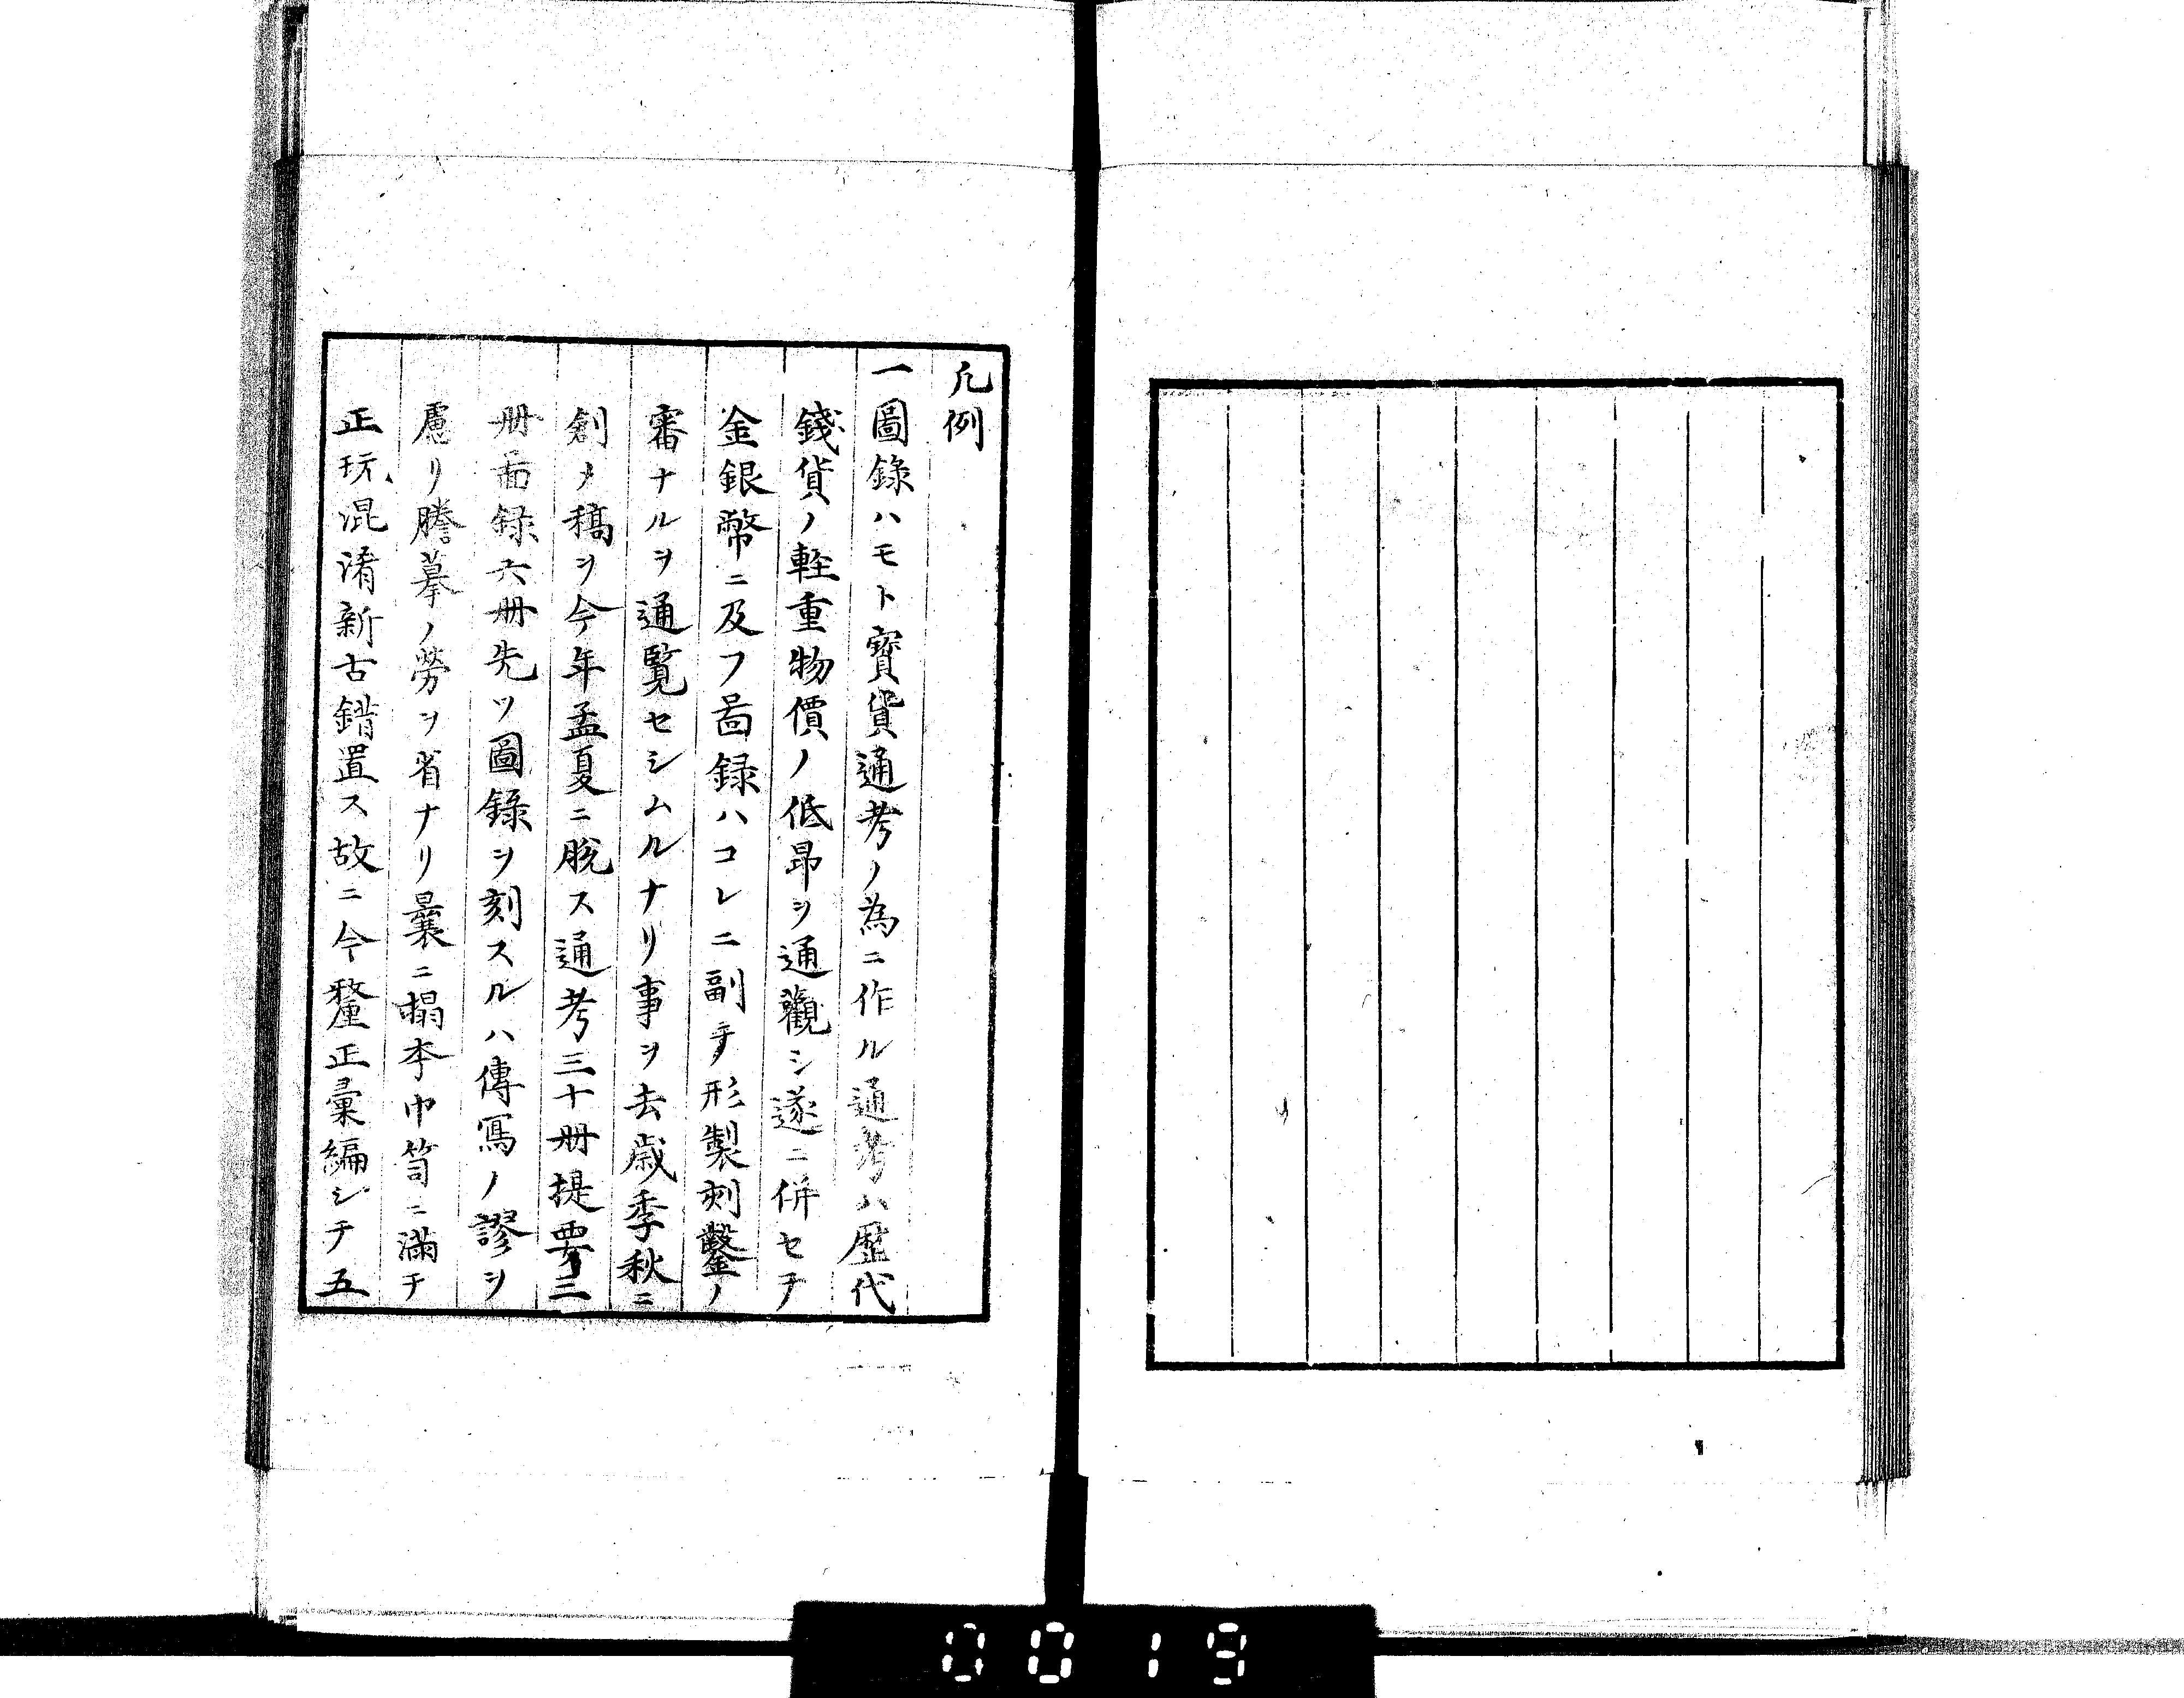 凡例
一圖錄ハモト寶貨通考ノ為ニ作ル通考ハ歷代
錢貨ノ輕重物價ノ低昂ヲ通觀シ遂ニ併セテ
金銀幣ニ及フ啚録ハコレニ副テ形製刻鑿ノ
審ナルヲ通覧セシムルナリ事ヲ去歳季秋ニ
創メ稿ヲ今年孟夏ニ脱ス通考三十册提要三
册啚録六册先ツ圖錄ヲ刻スルハ傳寫ノ謬ヲ
慮リ謄摹ノ勞ヲ省ナリ曩ニ搨本巾笥ニ滿チ
正玩混淆新古錯置ス故ニ今釐正彙編シテ五
0019